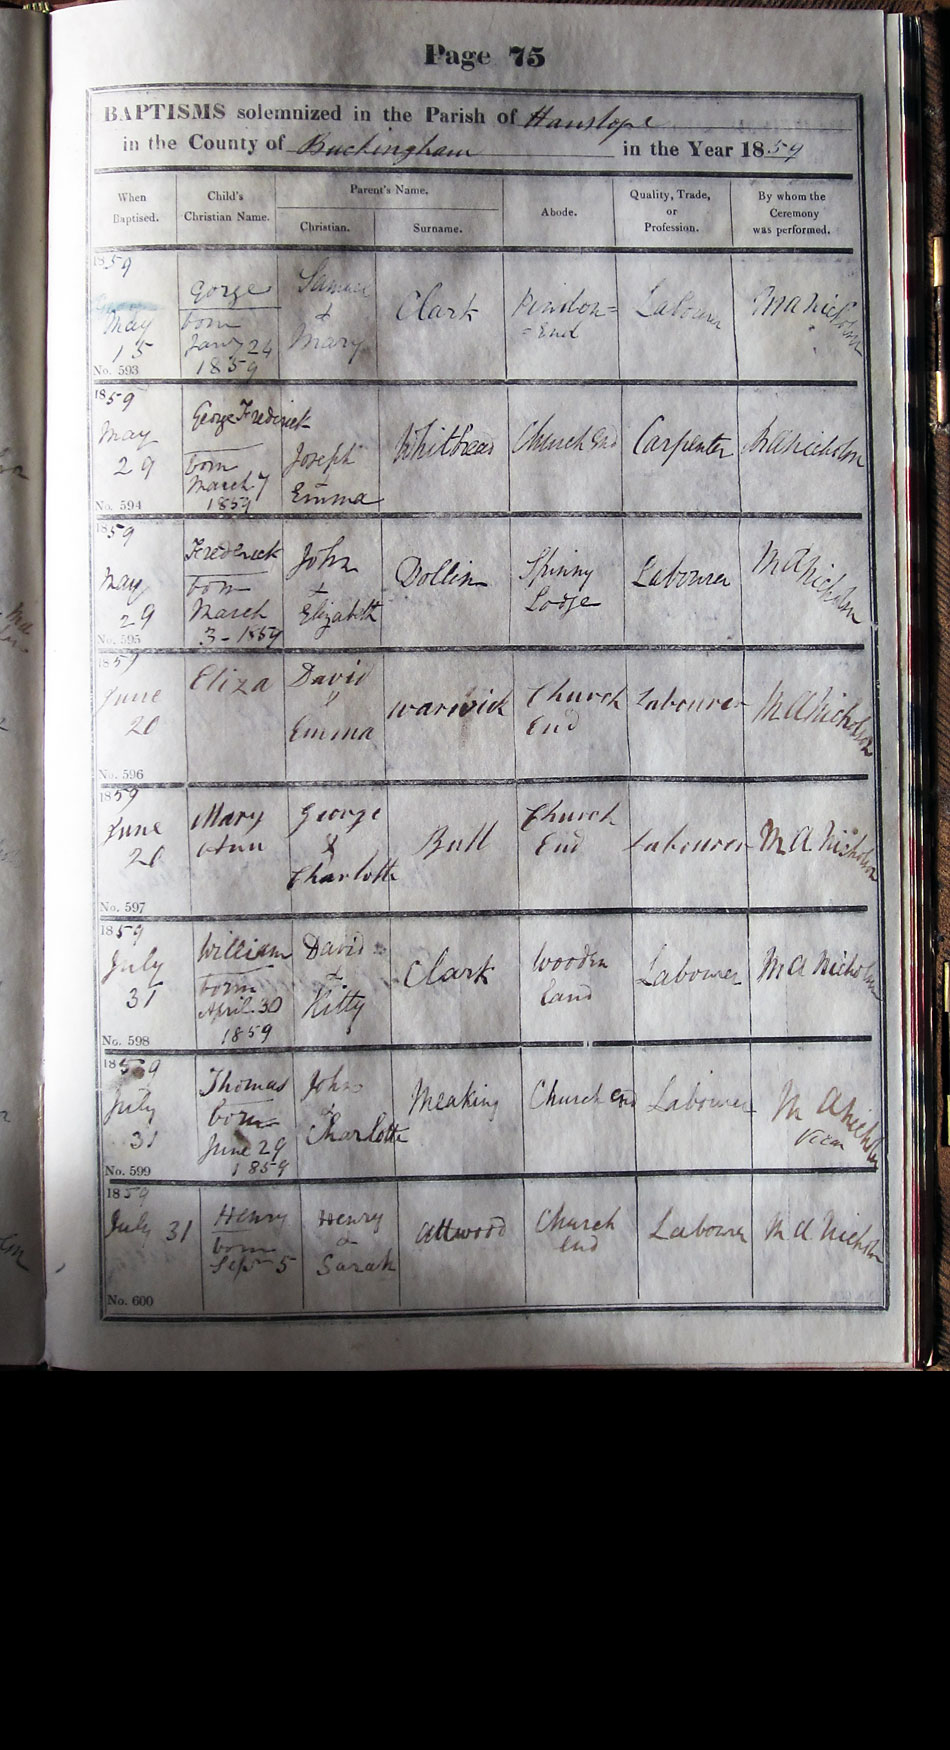 Page 75
BAPTISMS solemnized in the Parish of Hanslope
in the County of Buckingham in the Year 1859
When Baptised.
Child's Christian Name.
Parent's Name.
Christian.
Surname.
Abode.
Quality, Trade, or Profession.
By whom the Ceremony was performed.
1859
May
15
No. 593
Gorge
born
Jany 24
1859
Samuel
&
Mary
Clark
Pindon=
=End
Labourer
M A Nicholson
1859
May
29
No. 594
George Frederick
born
March 7
1859
Joseph
Emma
Whitbread
Church End
Carpenter
M A Nicholson
1859
May
29
No. 595
Frederick
born
March
3 - 1859
John
&
Elizabeth
Dollin
Spinny
Lodge
Labourer
M A Nicholson
1859
June
20
No. 596
Eliza
David
Emma
Warwick
Church
End
Labourer
M A Nicholson
1859
June
No. 597
Mary
Ann
George
&
Charlotte
Bull
Church
End
Labourer
M A Nicholson
1859
July
31
No. 598
William
born
April 30
1859
David
&
Kitty
Clark
Wooden
Labourer
M A Nicholson
1859
July
31
No. 599
Thomas
born
June 29
1859
John
&
Charlotte
Meaking
Church End
Labourer
M A Nicholson
Vicar
1859
July 31
No. 600
Henry
born
Sepr 5
Henry
&
Sarah
Attwood
Church
End
Labourer
M A Nicholson